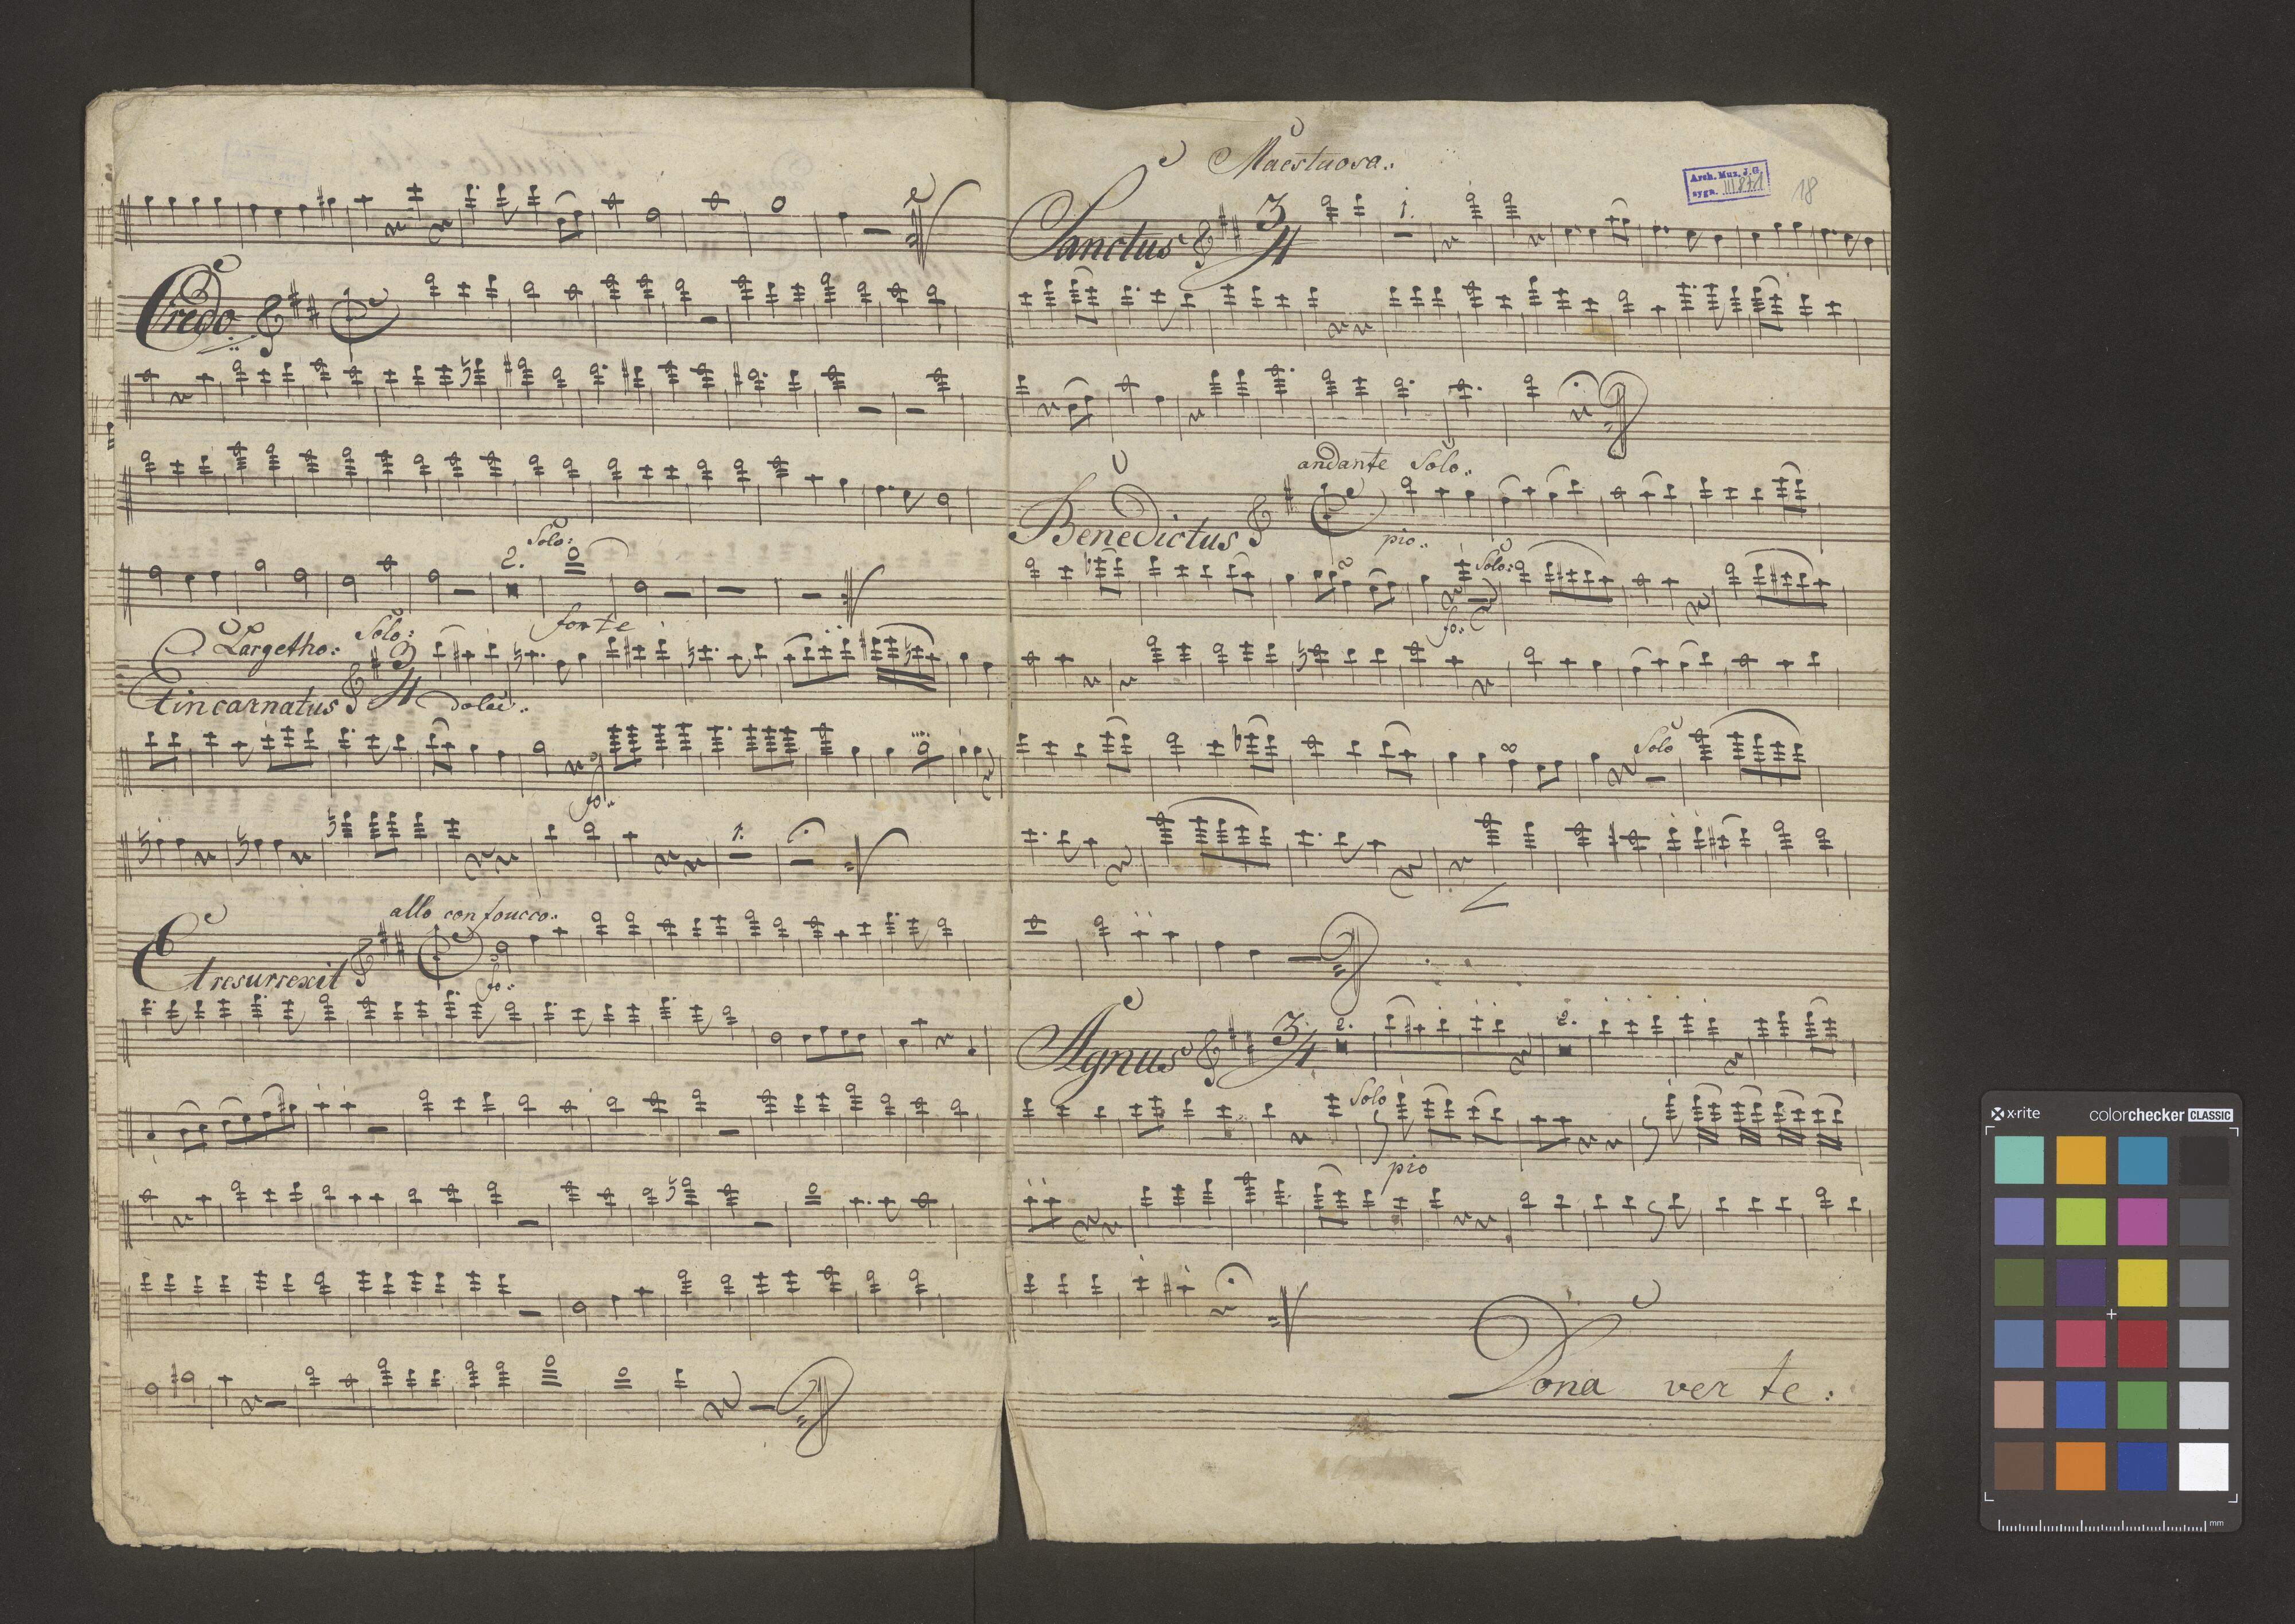 Credo
2. Solo:
forte
Largetho: Solo: 3/4
Et incarnatus dolce:
fo:
1.
allo con foucco:
Et resurrexit fo:
Maestuosa:
Sanctus 3/4 1.
Arch. Muz. J. G.
sygn. III 871
18
andante Solo:
Benedictus pio:
Solo:
fo:
Solo
Agnus 3/4 2. 2.
Solo
pio
Dona verte:
x-rite colorchecker CLASSIC
mm